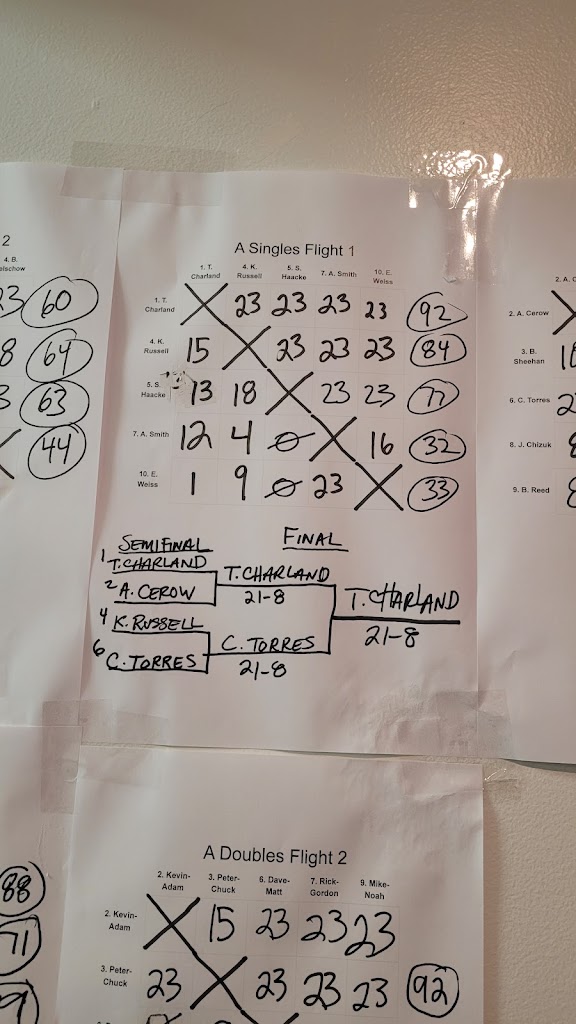 2
4. B.
elschow
23 60
8 64
3 63
44
A Singles Flight 1
1. T. Charland 4. K. Russell 5. S. Haacke 7. A. Smith 10. E. Weiss
1. T. Charland X 23 23 23 23 92
4. K. Russell 15 X 23 23 23 84
5. S. Haacke 13 18 X 23 23 77
7. A. Smith 12 4 0 X 16 32
10. E. Weiss 1 9 0 23 X 33
SEMIFINAL FINAL
1 T. CHARLAND
2 A. CEROW
T. CHARLAND
21-8
4 K. RUSSELL
6 C. TORRES
C. TORRES
21-8
T. CHARLAND
21-8
2. A. C
2. A. Cerow
3. B. Sheehan
6. C. Torres
8. J. Chizuk
9. B. Reed
A Doubles Flight 2
2. Kevin-Adam 3. Peter-Chuck 6. Dave-Matt 7. Rick-Gordon 9. Mike-Noah
2. Kevin-Adam X 15 23 23 23
3. Peter-Chuck 23 X 23 23 23 92
88
71